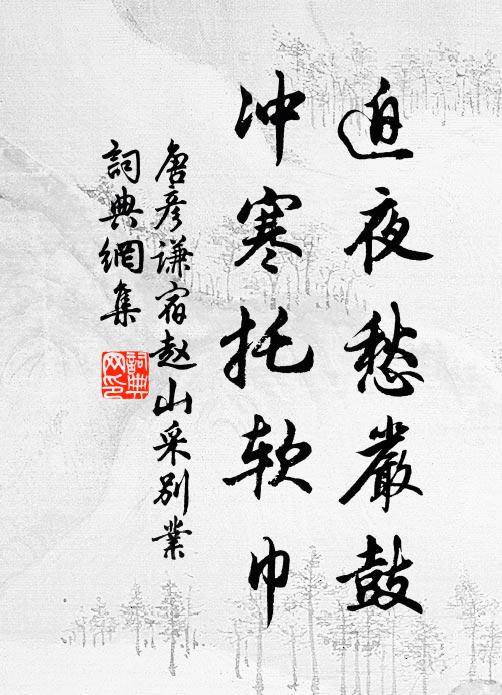 迫夜愁嚴鼓
冲寒托软巾
唐彦谦宿赵山采别業
詞典網集
詞典网印